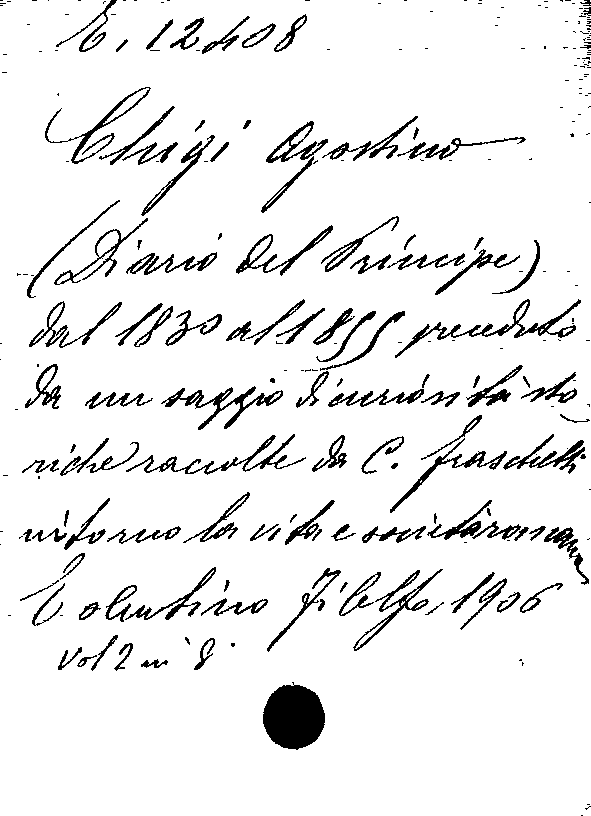 E. 12408
Chigi Agostino
(Diario del Principe)
dal 1830 al 1855 preceduto
da un saggio di curiosità sto
riche raccolte da C. Fraschetti
intorno la vita e società romana
Tolentino Filelfo, 1906
Vol 2 in 8.